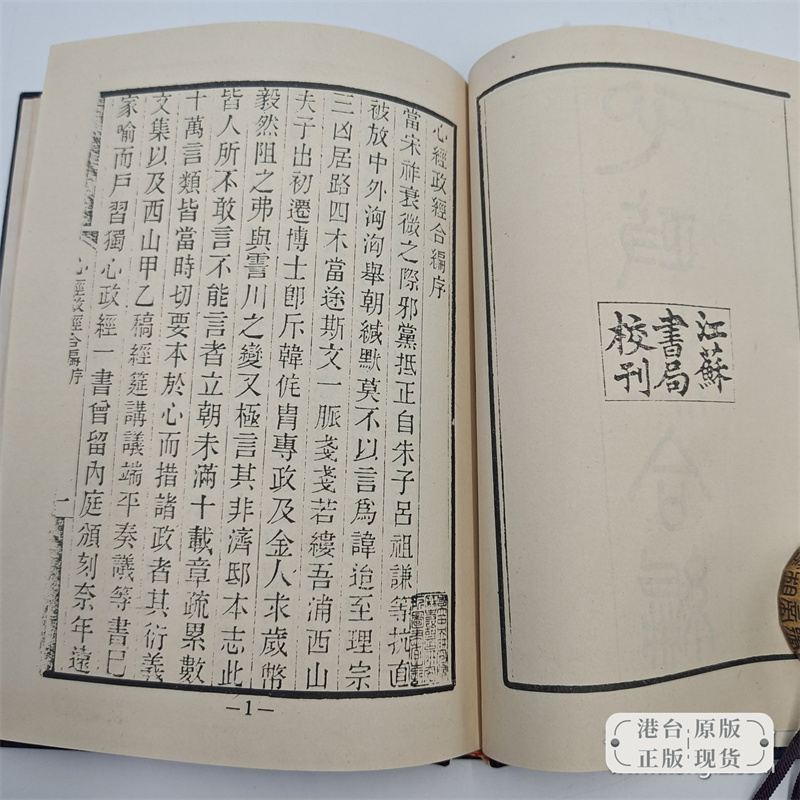 江蘇
書局
校刊
心經政經合編序
當宋祚衰微之際邪黨抵正自朱子呂祖謙等抗直
被放中外洶洶舉朝緘默莫不以言爲諱迨至理宗
三凶居路四木當途斯文一脈戔戔若縷吾浦西山
夫子出初遷博士卽斥韓侂冑專政及金人求歲幣
毅然阻之弗與霅川之變又極言其非濟邸本志此
皆人所不敢言不能言者立朝未滿十載章疏累數
十萬言類皆當時切要本於心而措諸政者其衍義
文集以及西山甲乙稿經筵講議端平奏議等書巳
家喻而戶習獨心政經一書曾留內庭頒刻奈年遠
心經政經合編序
一
—1—
港台原版
正版现货